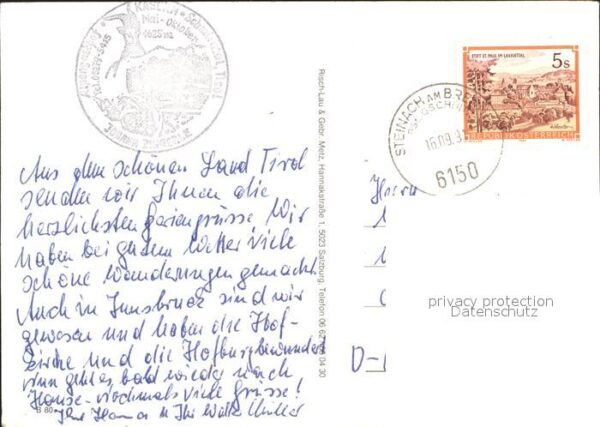 KASERN · Schmirntal, Tirol
Mai - Oktober
1625 m
5 s
STIFT ST. PAUL IM LAVANTTAL
REPUBLIK ÖSTERREICH
STEINACH AM
16.09.
6150
Aus dem schönen Land Tirol
senden wir Ihnen die
herzlichsten Feriengrüsse Wir
haben bei gutem Wetter viele
schöne Wanderungen gemacht.
Auch in Innsbruck sind wir
gewesen und haben die Hof-
kirche und die Hofburg bewundert
nun geht es bald wieder nach
Hause. Nochmals viele Grüsse!
Ihre Hanna u Ihr Walter Müller
B 80
Risch-Lau & Gebr. Metz, Hannakstraße 1, 5023 Salzburg, Telefon 06 62 04 30
Herrn
D-
privacy protection
Datenschutz